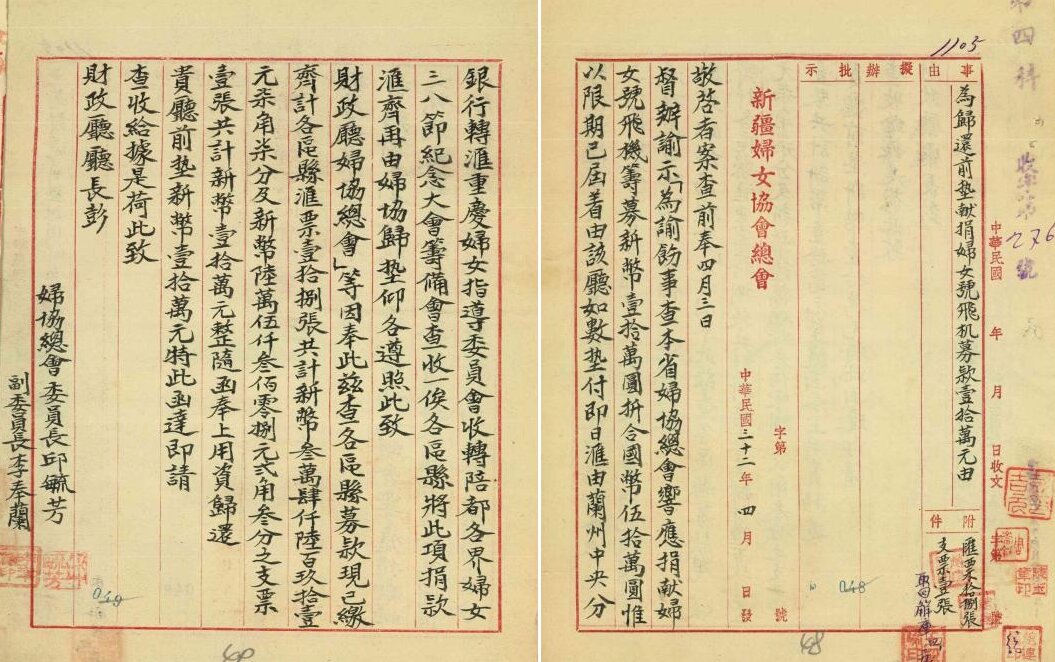 1105
第四科
收字第276號
中華民國 年 月 日收文 字第 號
事由 擬辦 批示
為歸還前墊献捐婦女號飛机募款壹拾萬元由
附件
匯票拾捌張
支票壹張
字第 號
中華民國三十二年 四 月 日發
新疆婦女協會總會
敬啓者案查前奉四月三日
督辦諭示「為諭飭事查本省婦協總會響應捐献婦
女號飛機籌募新幣壹拾萬圓折合國幣伍拾萬圓惟
以限期已屆着由該廳如數墊付即日滙由蘭州中央分
048
48
銀行轉滙重慶婦女指導委員會收轉陪都各界婦女
三八節紀念大會籌備會查收一俟各區縣將此項捐款
滙齊再由婦協歸墊仰各遵照此致
財政廳婦協總會」等因奉此茲查各區縣募款現已繳
齊計各區縣滙票壹拾捌張共計新幣叁萬肆仟陸百玖拾壹
元柒角柒分及新幣陸萬伍仟叁佰零捌元弍角叁分之支票
壹張共計新幣壹拾萬元整隨函奉上用資歸還
貴廳前墊新幣壹拾萬元特此函達即請
查收給據是荷此致
財政廳廳長彭
婦協總會委員長邱毓芳
副委員長李奉蘭
049